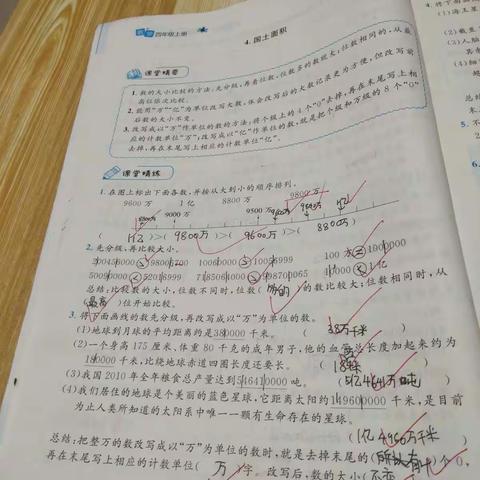 四年级上册
4. 国土面积
课堂精要
1. 数的大小比较的方法:先分级,再看位数,位数多的数就大;位数相同的,从最
高位依次比较。
2. 能用“万”“亿”为单位改写大数,体会改写后的大数记录更为方便,但改写前
后数的大小不变。
3. 改写成以“万”作单位的数的方法:将个级上的4个“0”去掉,再在末尾写上相
应的计数单位“万”;改写成以“亿”作单位的数,就是把个级和万级的8个“0”
去掉,再在末尾写上相应的计数单位“亿”。
课堂精练
1. 在图上标出下面各数,并按从大到小的顺序排列。
9600万 1亿 8800万 9800万
9000万 9500万
( 1亿 )>( 9800万 )>( 9600万 )>( 8800万 )
2. 先分级,再比较大小。
总结:比较数的大小,位数不同时,位数( )的数比较大;位数相同时,从
(最高)位开始比较。
3. 将下面画线的数先分级,再改写成以“万”为单位的数。
(1)地球到月球的平均距离约是380000千米。 (38万千米)
(2)一个身高175厘米、体重80千克的成年男子,他的血管总长度加起来约为
180000千米,比绕地球赤道四圈长度还要长。
(3)我国2010年全年粮食总产量达到546410000吨。 (5亿4641万吨)
(4)我们居住的地球是个美丽的蓝色星球,它距离太阳约149600000千米,是目前
为止人类所知道的太阳系中唯一一颗有生命存在的星球。
(1亿4960万千米)
总结:把整万的数改写成以“万”为单位的数时,就是去掉末尾的( )个0,
再在末尾写上相应的计数单位( 万 )字。改写后,数的大小(不变